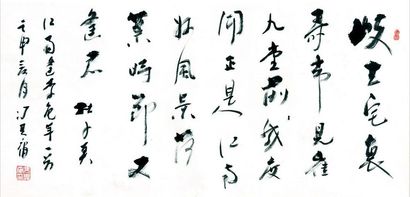 岐王宅裏
尋常見崔
九堂前幾度
聞正是江南
好風景落
華時節又
逢君 杜子美
江南逢李龟年一首
壬申 月